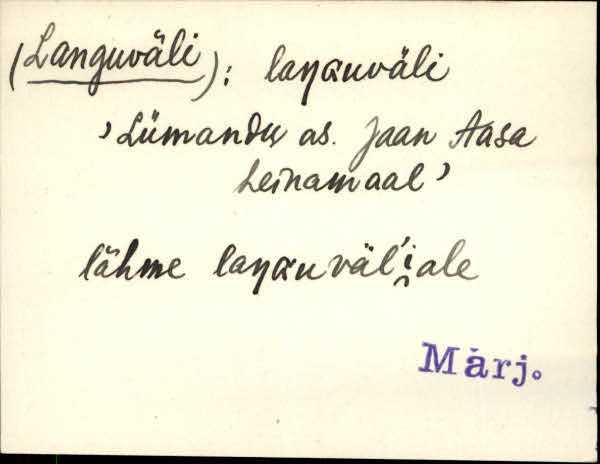 (Languväli): laŋɢuväli
'Lümandu as. Jaan Aasa
heinamaal'
lähme laŋɢuväl'i̮ale
Märj.